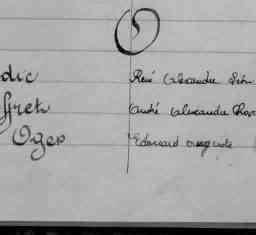 O
dic René Alexandre Léon
ffret André Alexandre
Oger Edouard Auguste